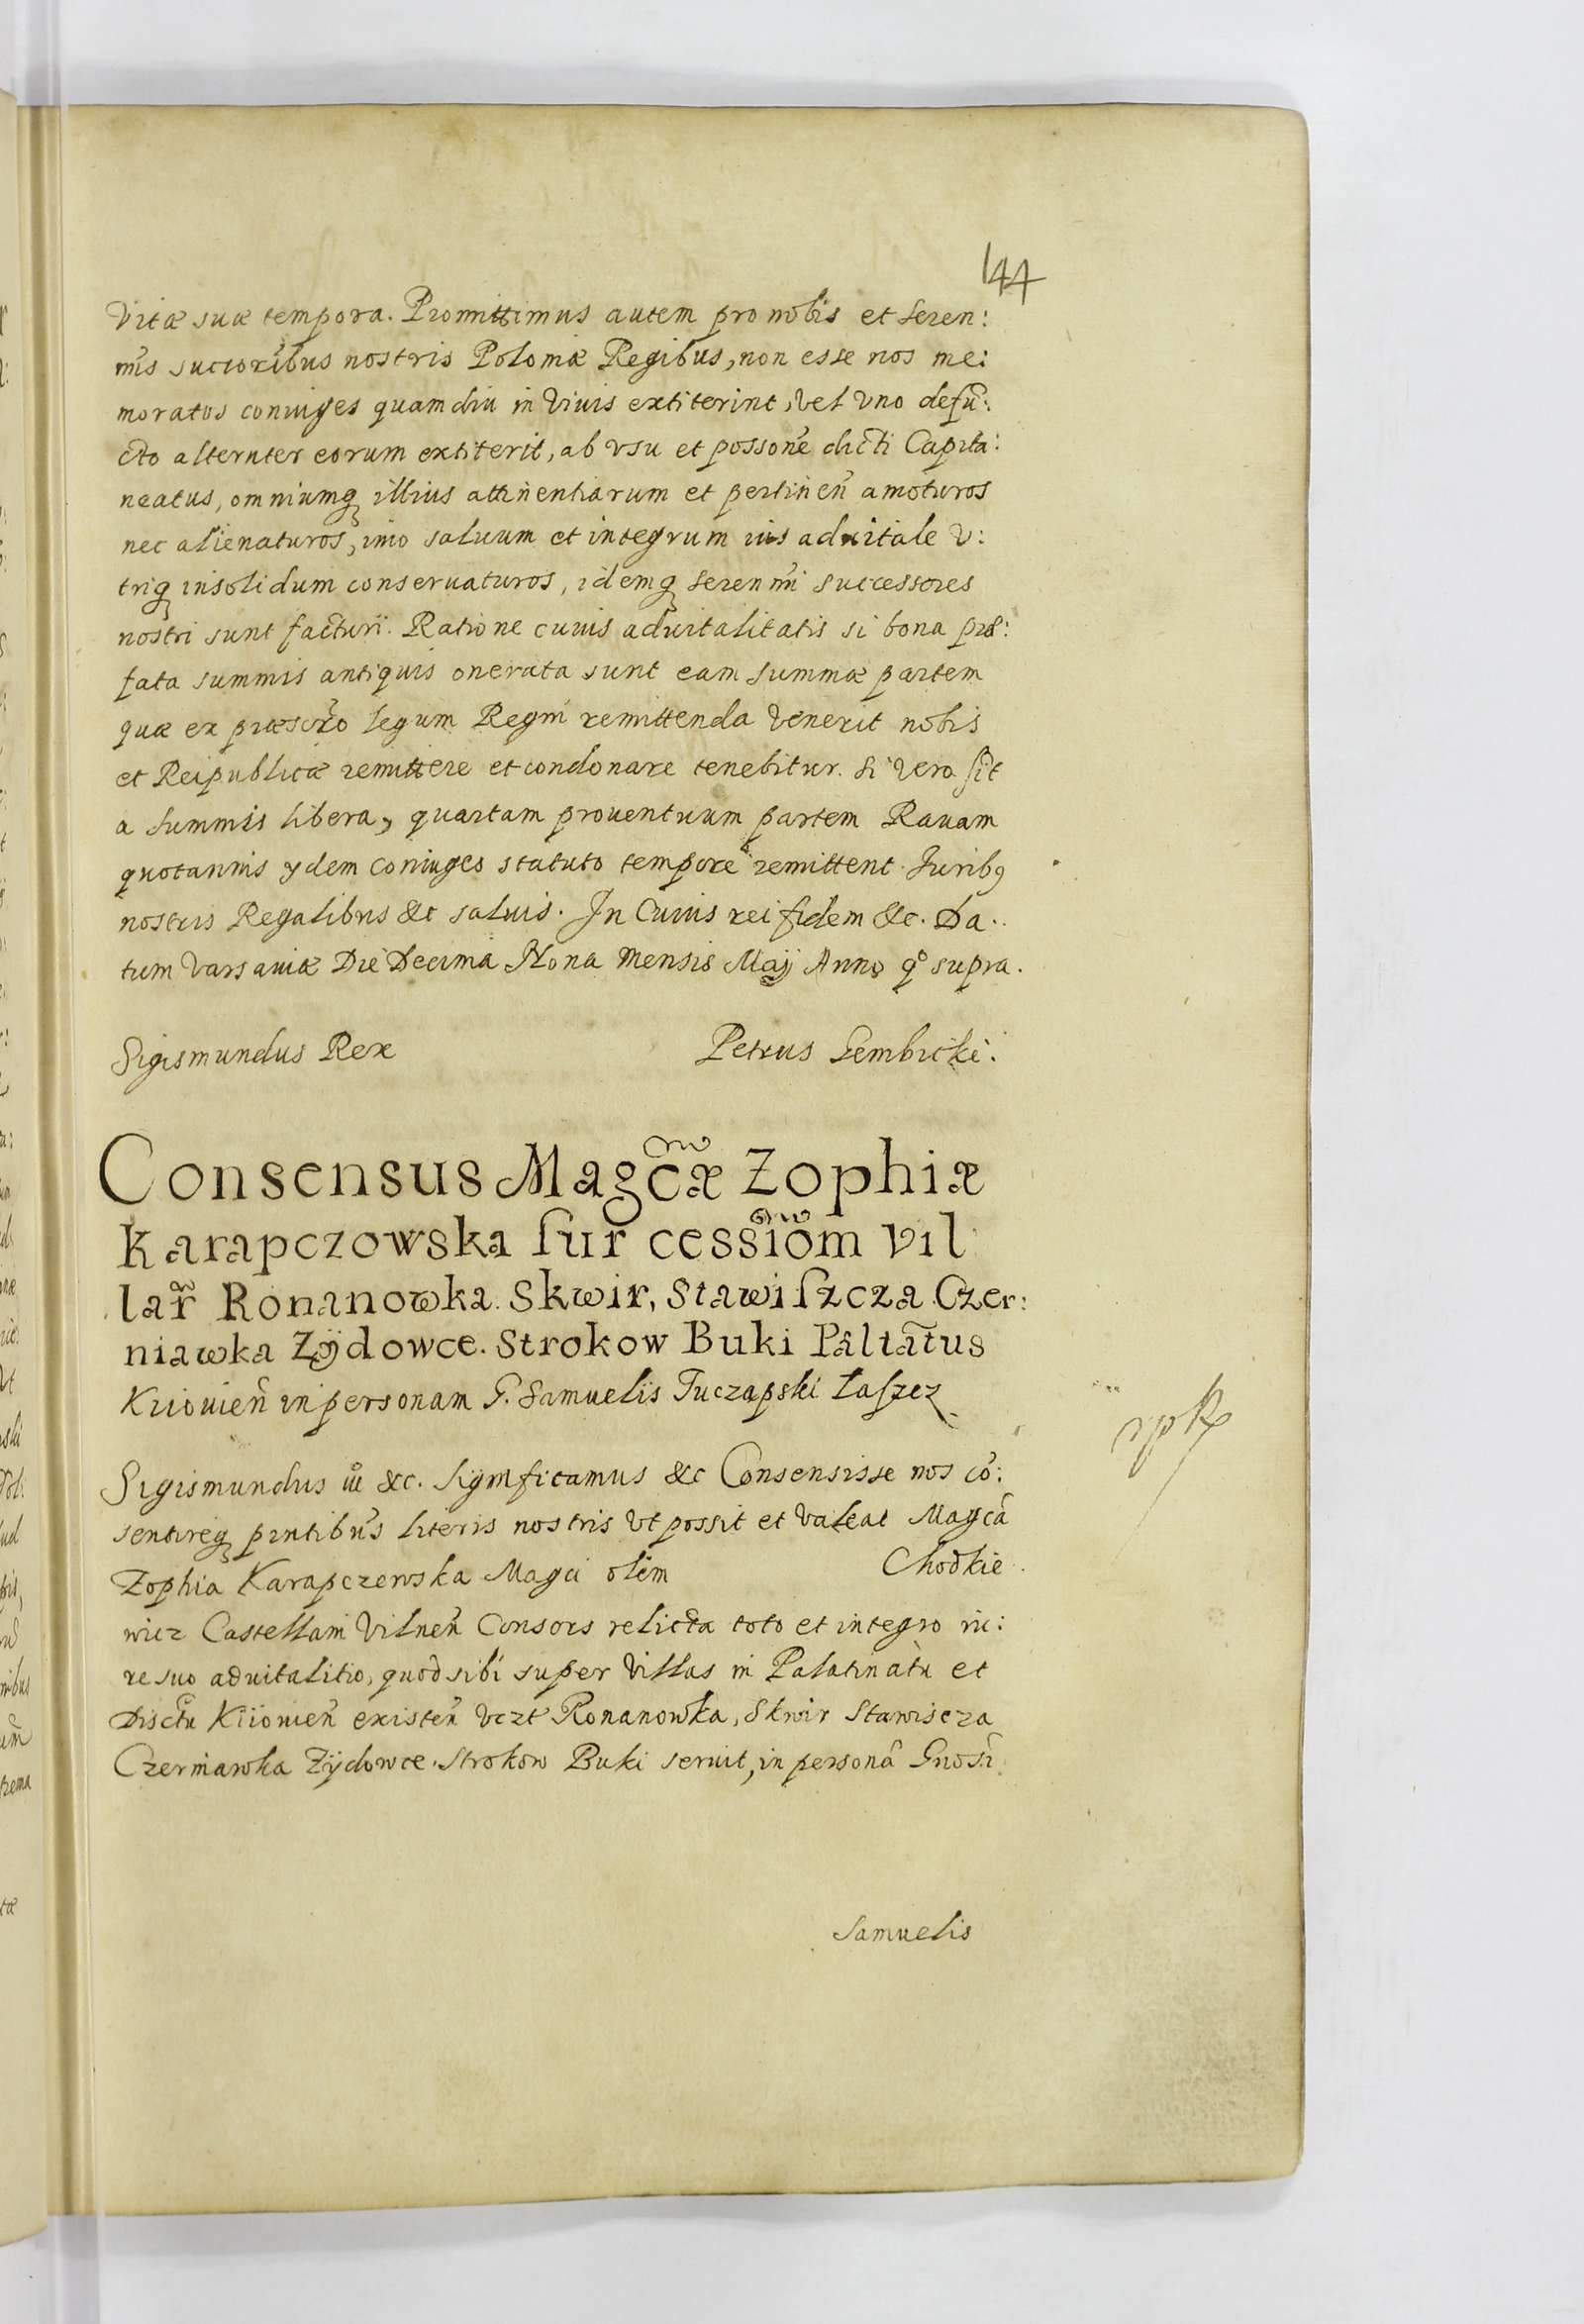 144
Vitæ suæ tempora. Promittimus autem pro nobis et Seren:
mis succoribus nostris Poloniæ Regibus, non esse nos me:
moratos coniuges quamdiu in Viuis extiterint, vel vno defũ:
cto alteruter eorum extiterit, ab vsu et possoñe dicti Capita:
neatus, omniumq illius attinentiarum et pertineñ amoturos
nec alienaturos, imo saluum et integrum ius aduitale v:
triq insolidum conseruaturos, idemq Serenmi successores
nostri sunt facturi. Ratione cuius aduitalitatis si bona præ:
fata summis antiquis onerata sunt eam summæ partem
quæ ex præscrõ legum Regni remittenda venerit nobis
et Reipublicæ remittere et condonare tenebitur. Si vero sit
a summis libera, quartam prouentuum partem Rauam
quotannis ydem coniuges statuto tempore remittent. Juribꝯ
nostris Regalibus &c saluis. In Cuius rei fidem &c. Da:
tum Varsauiæ Die Decima Nona Mensis Maij Anno qº supra.
Sigismundus Rex Petrus Gembicki.
Consensus Magcæ Zophiæ
Karapczowska sur cessiom vil
lar̃ Ronanowka. Skwir, Stawiszcza Czer:
niawka Zÿdowce. Strokow Buki Paltatus
Kiiouieñ in personam G. Samuelis Tuczapski Łaszcz
Sigismundus iii &c. Significamus &c Consensisse nos cõ:
sentireq pntibus literis nostris vt possit et valeat Magcã
Zophia Karapczewska Magci olim Chodkie
wicz Castellani Vilneñ Consors relicta toto et integro iu:
re suo aduitalitio, quod sibi super Villas in Palatinatu et
Disctu Kiiouieñ existeñ vczt Ronanowka, Skwir Stawiscza
Czerniawka Zÿdowce. Strokow Buki seruit, in personã Gnosi
Samuelis